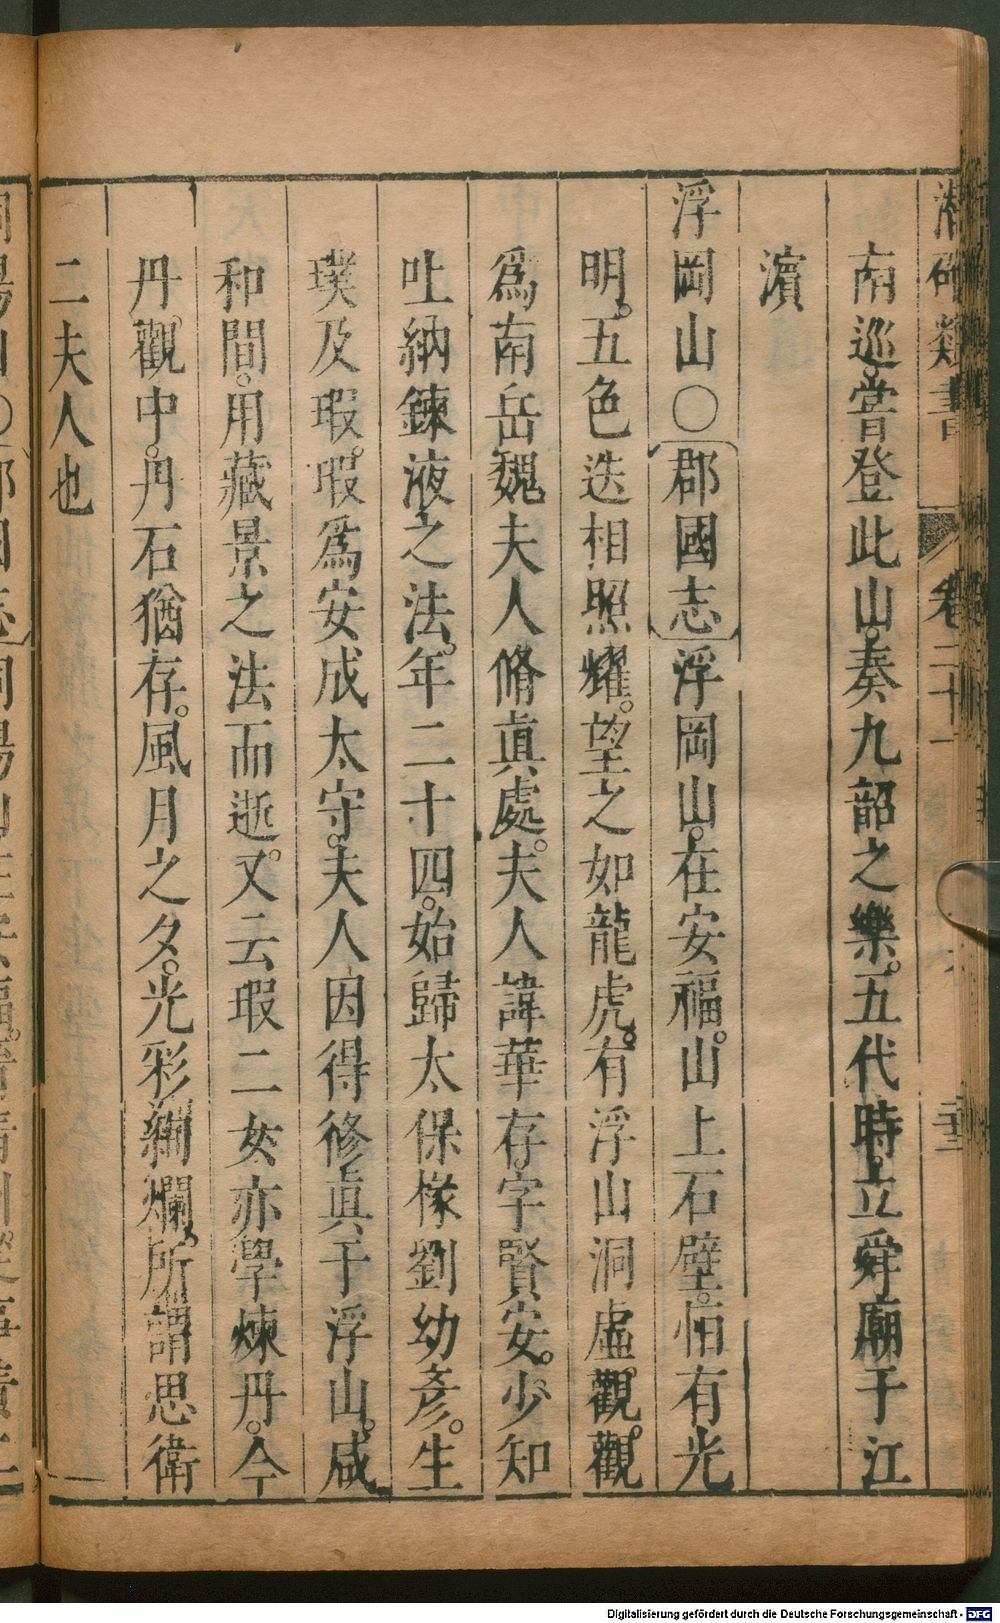 潛確類書 卷二十一
南巡嘗登此山。奏九韶之樂。五代時。立舜廟于江
濵
浮岡山〇郡國志浮岡山。在安福。山上石壁。怕有光
明。五色迭相照耀。望之如龍虎。有浮山洞虛觀。觀
爲南岳魏夫人脩眞處。夫人諱華存。字賢安。少知
吐納鍊液之法。年二十四。始歸太保㨾劉幼彥。生
璞及瑕。瑕爲安成太守。夫人因得修眞于浮山。咸
和間。用藏景之法而逝。又云瑕二女。亦學煉丹。今
丹觀中。丹石猶存。風月之夕。光彩斕爛。所謂思衛
二夫人也
Digitalisierung gefördert durch die Deutsche Forschungsgemeinschaft - DFG